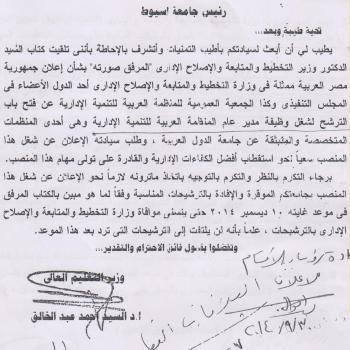 رئيس جامعة أسيوط
تحية طيبة وبعد...
يطيب لي أن أبعث لسيادتكم بأطيب التمنيات وأتشرف بالإحاطة بأننى تلقيت كتاب السيد
الدكتور وزير التخطيط والمتابعة والإصلاح الإدارى "المرفق صورته" بشأن إعلان جمهورية
مصر العربية ممثلة فى وزارة التخطيط والمتابعة والإصلاح الإدارى أحد الدول الأعضاء فى
المجلس التنفيذى وكذا الجمعية العمومية للمنظمة العربية للتنمية الإدارية عن فتح باب
الترشح لشغل وظيفة مدير عام المنظمة العربية للتنمية الإدارية وهى أحدى المنظمات
المتخصصة والمنبثقة عن جامعة الدول العربية ، وطلب سيادته الإعلان عن شغل هذا
المنصب سعياً نحو استقطاب أفضل الكفاءات الإدارية والقادرة على تولى مهام هذا المنصب.
برجاء التكرم بالنظر والتكرم بالتوجيه باتخاذ ماترونه لازماً نحو الإعلان عن شغل هذا
المنصب بجامعتكم الموقرة والإفادة بالترشيحات المناسبة وفقاً لما هو مبين بالكتاب المرفق
فى موعد غايته ١٠ ديسمبر ٢٠١٤ حتى يتسنى موافاة وزارة التخطيط والمتابعة والإصلاح
الإدارى بالترشيحات ، علماً بأنه لن يلتفت إلى الترشيحات التى ترد بعد هذا الموعد.
وتفضلوا بقبول فائق الاحترام والتقدير...
وزير التعليم العالى
أ.د السيد أحمد عبد الخالق